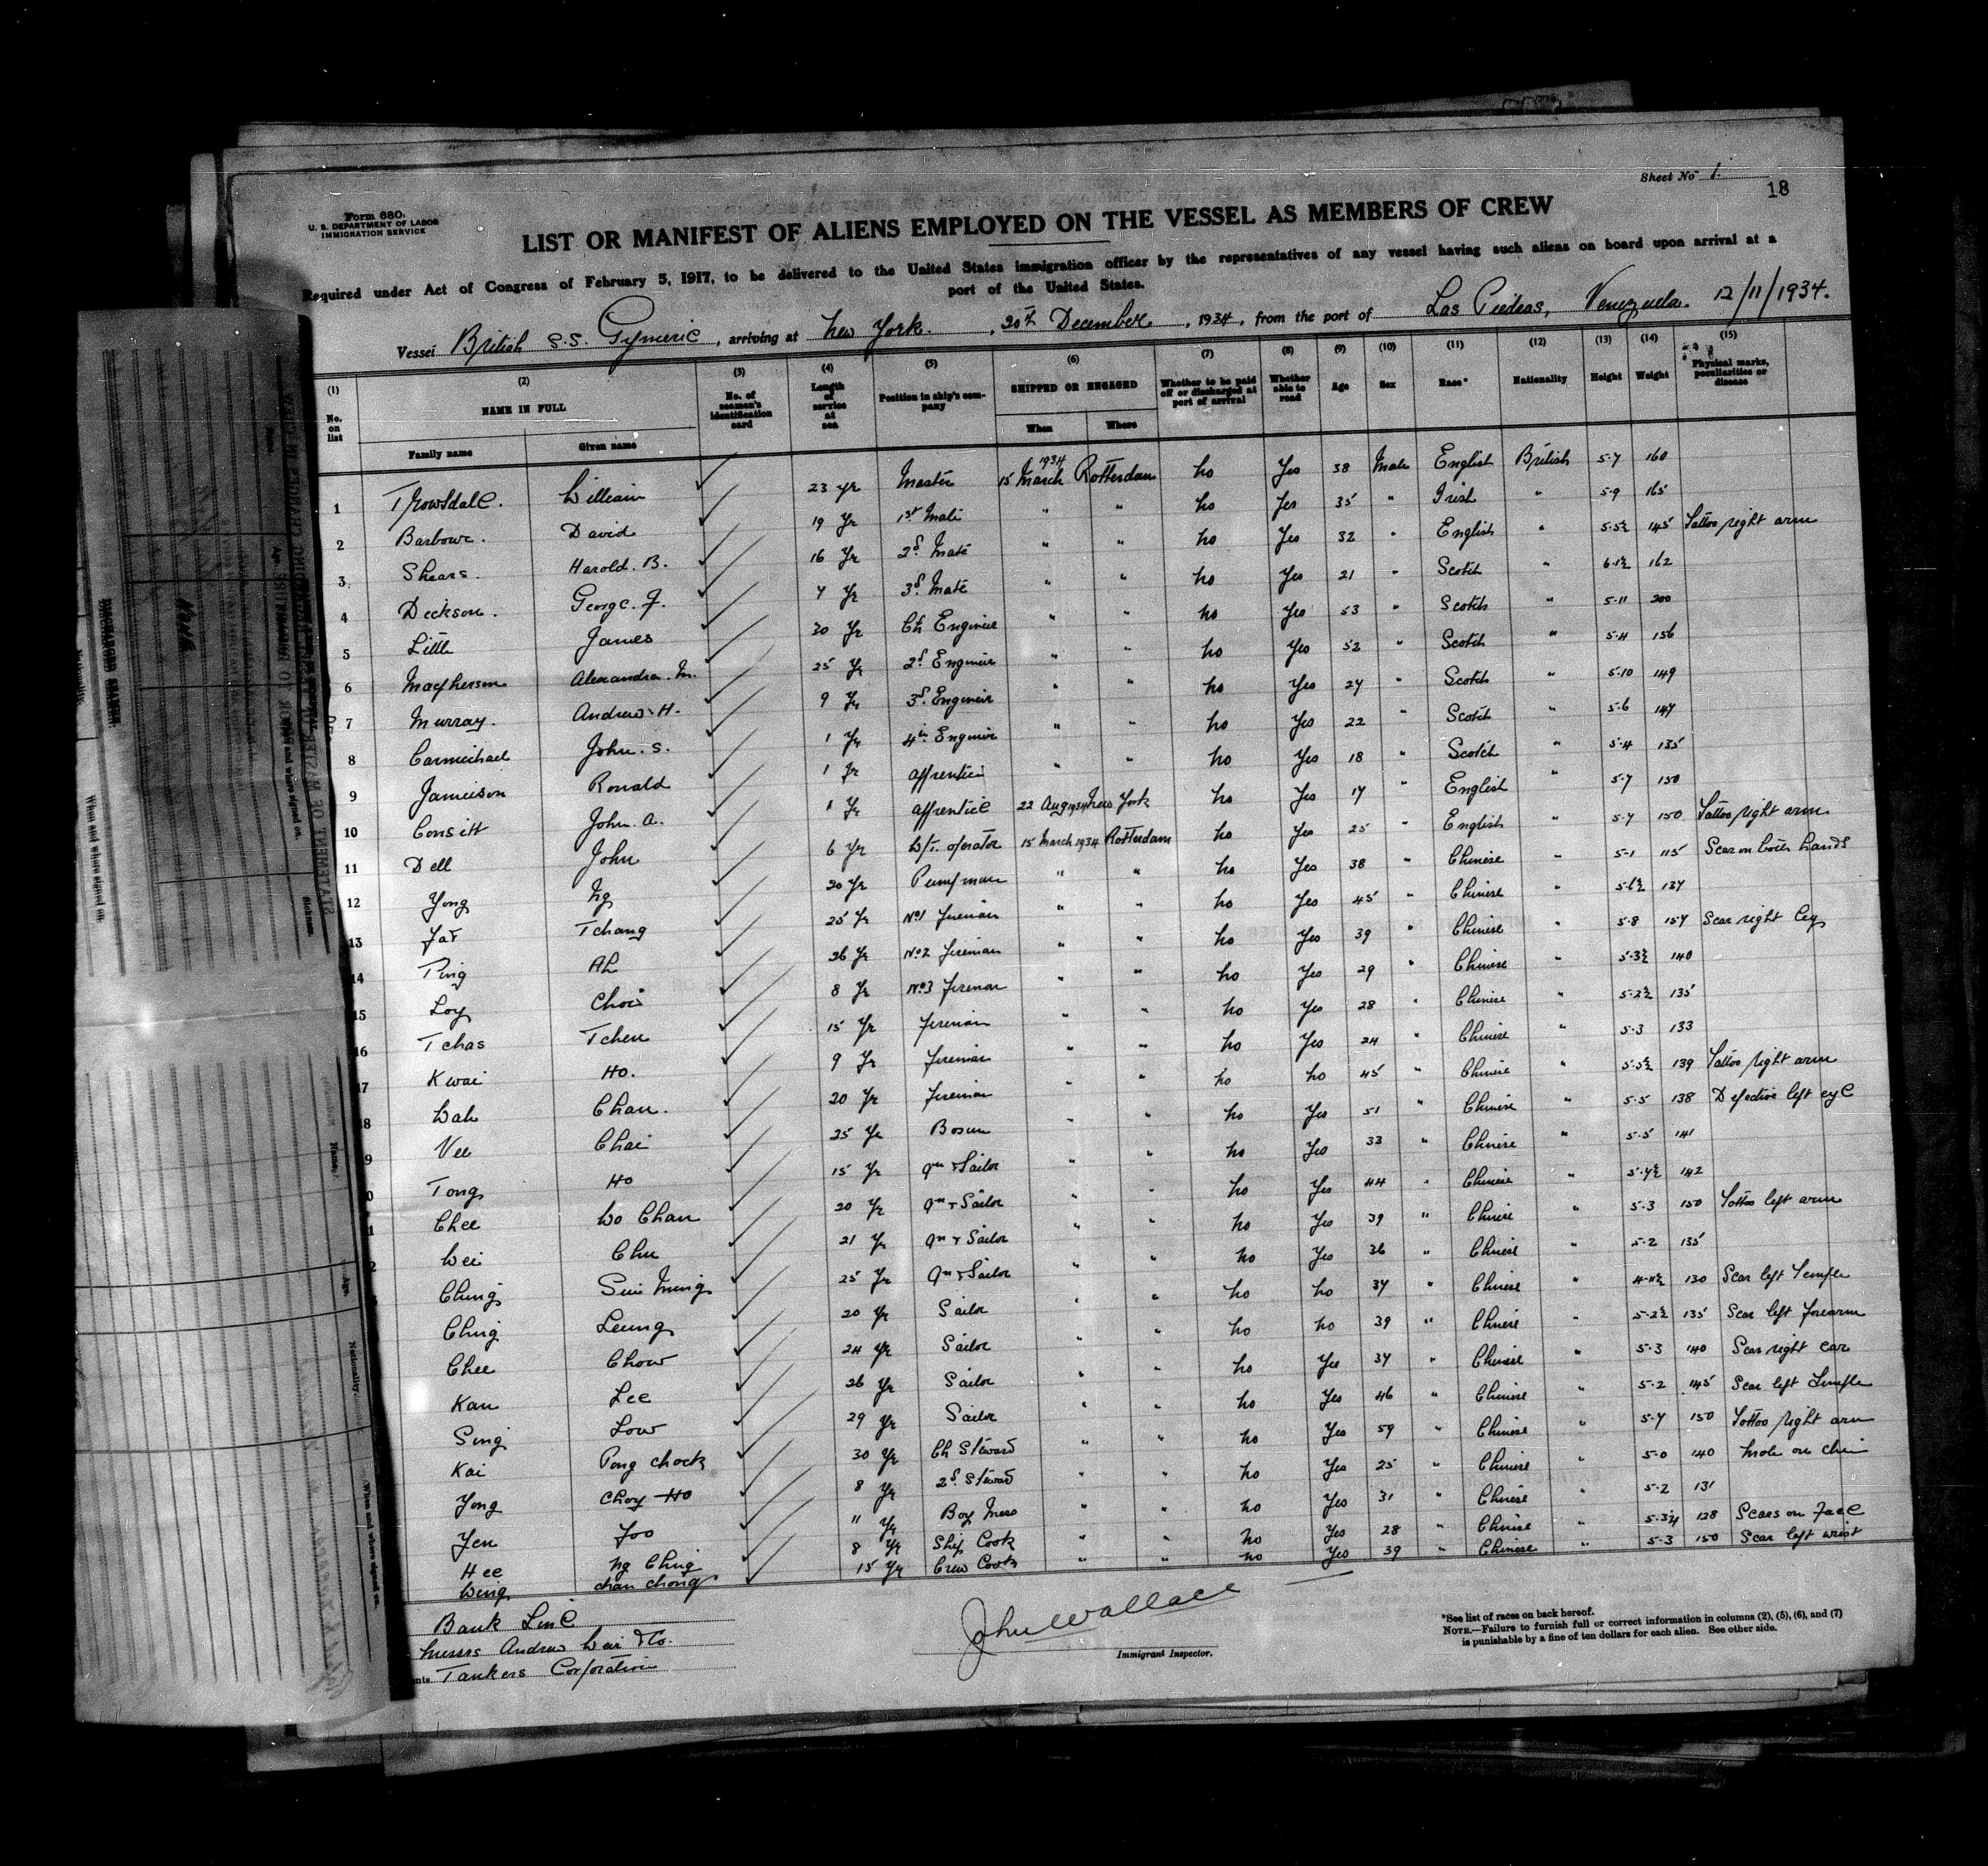 Sheet No 1.
18
Form 680.
U. S. DEPARTMENT OF LABOR
IMMIGRATION SERVICE
LIST OR MANIFEST OF ALIENS EMPLOYED ON THE VESSEL AS MEMBERS OF CREW
Required under Act of Congress of February 5, 1917, to be delivered to the United States immigration officer by the representatives of any vessel having such aliens on board upon arrival at a
port of the United States.
Vessel British S.S. Gymeric, arriving at New York., 20th December, 1934, from the port of Las Piedras, Venezuela. 12/11/1934.
(1) No. on list (2) NAME IN FULL Family name Given name (3) No. of seamen's identification card (4) Length of service at sea (5) Position in ship's company (6) SHIPPED OR ENGAGED When Where (7) Whether to be paid off or discharged at port of arrival (8) Whether able to read (9) Age (10) Sex (11) Race* (12) Nationality (13) Height (14) Weight (15) Physical marks, peculiarities or disease
1 Trowsdale. William 23 yr Master 15 March 1934 Rotterdam no Yes 38 Male English British 5-7 160
2 Barbour. David 19 Yr 1st Mate " " no Yes 35 " Irish " 5-9 165
3 Shears. Harold. B. 16 Yr 2d Mate " " no Yes 32 " English " 5-5½ 145 Tattoo right arm
4 Dickson. George. J. 4 Yr 3d Mate " " no Yes 21 " Scotch " 6-1½ 162
5 Little James 30 Yr Ch Engineer " " no Yes 53 " Scotch " 5-11 200
6 Macpherson Alexandra. M. 25 Yr 2d Engineer " " no Yes 52 " Scotch " 5-4 156
7 Murray. Andrew. H. 9 Yr 3d Engineer " " no Yes 27 " Scotch " 5-10 149
8 Carmichael John. S. 1 Yr 4th Engineer " " no Yes 22 " Scotch " 5-6 147
9 Jamieson Ronald 1 Yr apprentice " " no Yes 18 " Scotch " 5-4 135
10 Consitt John. A. 1 Yr apprentice 22 Aug 1934 New York no Yes 17 " English " 5-7 150
11 Dell John 6 Yr W/T. operator 15 March 1934 Rotterdam no Yes 25 " English 5-7 150 Tattoo right arm
12 Yong Ng 20 Yr Pumpman " " no Yes 38 " Chinese 5-1 115 Scar on both hands
13 Fat Tchang 25 Yr No1 fireman " " no Yes 45 " Chinese 5-6½ 137
14 Ping Ah 26 Yr No2 fireman " " no Yes 39 " Chinese " 5-8 157 Scar right leg
15 Loy Choi 8 Yr No3 fireman " " no Yes 29 " Chinese " 5-3½ 140
16 Tchas Tchen 15 Yr fireman " " no Yes 28 " Chinese " 5-2½ 135
17 Kwai Ho. 9 Yr fireman " " no Yes 24 " Chinese " 5-3 133
8 Wah Chan. 20 Yr fireman " " no no 45 " Chinese " 5-5½ 139 Tattoo right arm
9 Vee Chai 25 Yr Bosun " " no Yes 51 " Chinese " 5-5 138 Defective left eye
0 Tong Ho 15 Yr Qm & Sailor " " no Yes 33 " Chinese " 5-5 141
1 Chee Wo Chan 20 Yr Qm & Sailor " " no Yes 44 " Chinese 5-4½ 142
2 Wei Chu 21 Yr Qm & Sailor " " no Yes 39 " Chinese " 5-3 150 Tattoo left arm
Ching Sui Mung 25 Yr Qm & Sailor " " no Yes 36 " Chinese " 5-2 135
Ching Leung 20 Yr Sailor " " no no 37 " Chinese " 4-11½ 130 Scar left Temple
Chee Chow 24 Yr Sailor " " no no 39 " Chinese " 5-2½ 135 Scar left forearm
Kan Lee 26 Yr Sailor " " no Yes 37 " Chinese " 5-3 140 Scar right ear
Sing Low 29 Yr Sailor " " no Yes 46 " Chinese " 5-2 145 Scar left Temple
Kai Pong chock 30 Yr Ch Steward " " no Yes 59 " Chinese " 5-7 150 Tattoo right arm
Yong Choy Ho 8 Yr 2d Steward " " no Yes 25 " Chinese " 5-0 140 mole on chin
Yen Foo 11 Yr Boy Mess " " no Yes 31 " Chinese " 5-2 131
Hee Ng Ching 8 Yr Ship Cook " " no Yes 28 " Chinese " 5-3¼ 128 Scars on face
Wing chan chong 15 Yr Crew Cook " " no Yes 39 " Chinese " 5-3 150 Scar left wrist
Bank Line
Messrs Andrew Weir & Co.
Tankers Corporation
John Wallace
Immigrant Inspector.
*See list of races on back hereof.
NOTE.—Failure to furnish full or correct information in columns (2), (5), (6), and (7)
is punishable by a fine of ten dollars for each alien. See other side.